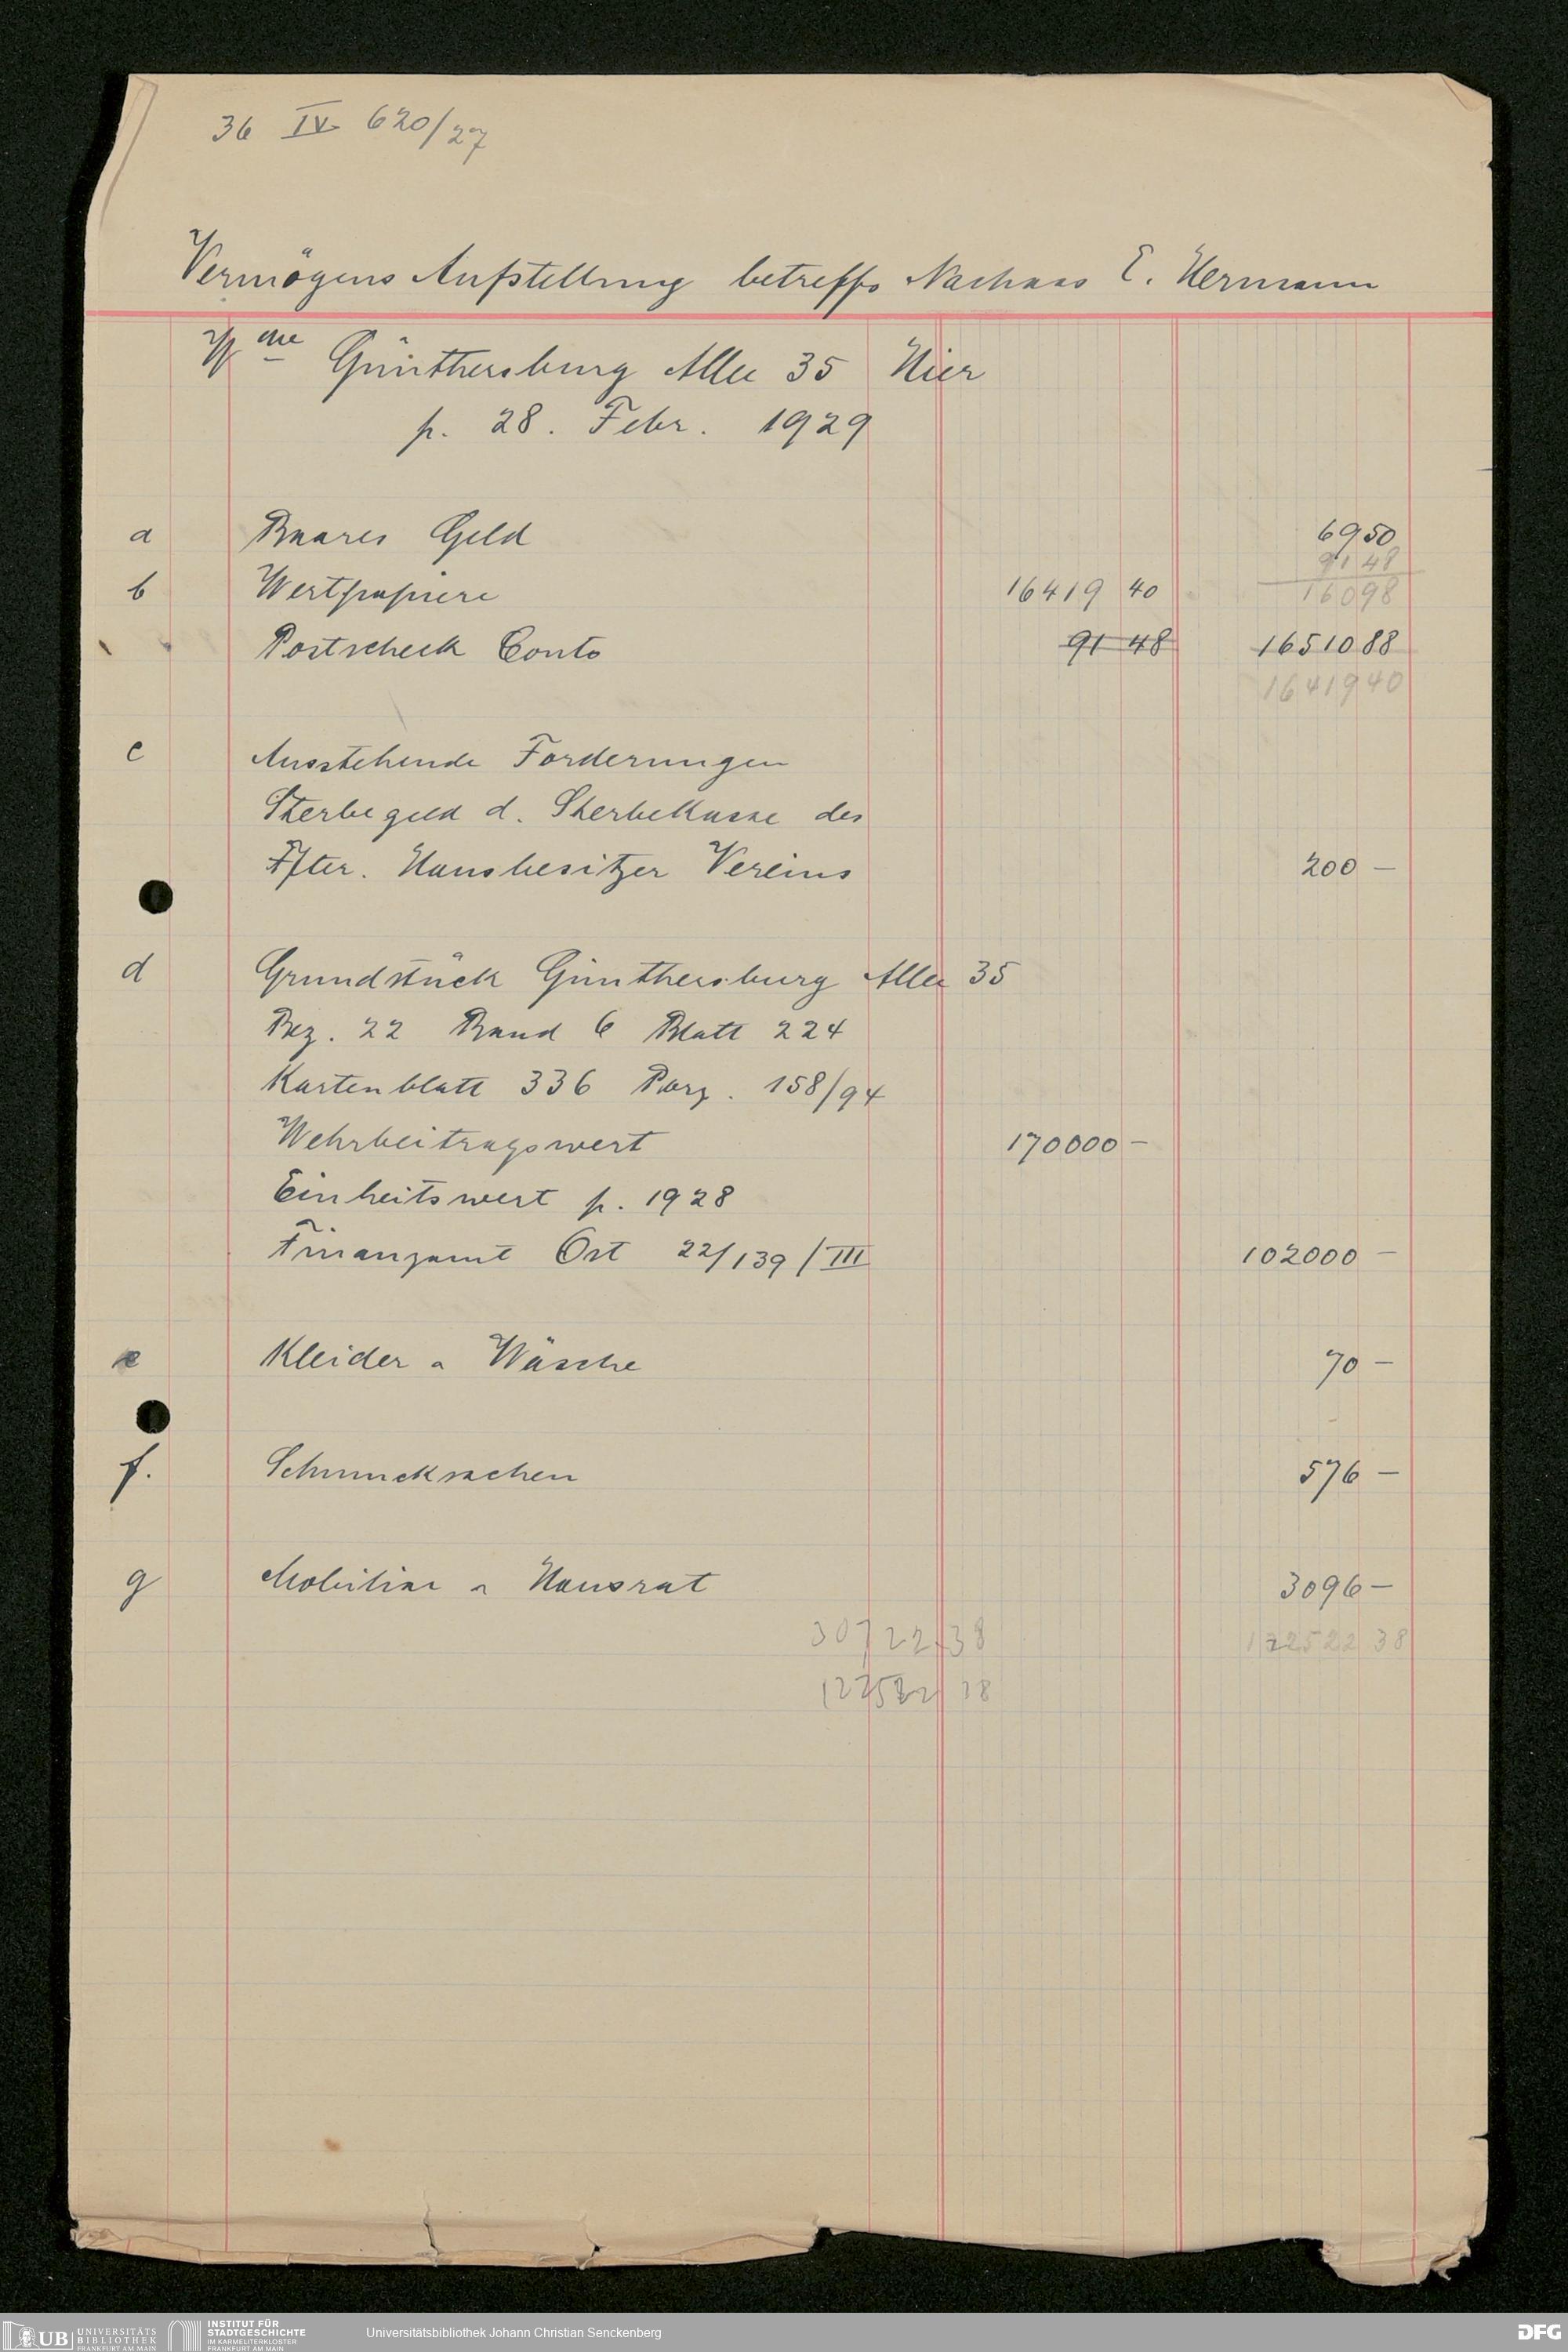 36 IV 620/27
Vermögens Aufstellung betreffs Nachlass E. Hermann
Wwe Günthersburg Allee 35 Hier
p. 28. Febr. 1929
a Baares Geld 69 50
91 48
160 98
b Wertpapiere 16419 40
Postscheck Conto 91 48 16510 88
16419 40
c Ausstehende Forderungen
Sterbegeld d. Sterbekasse des
Ffter. Hausbesitzer Vereins 200 —
d Grundstück Günthersburg Allee 35
Bez. 22 Band 6 Blatt 224
Kartenblatt 336 Parz. 158/94
Wehrbeitragswert 170000 —
Einheitswert p. 1928
Finanzamt Ost 22/139/III 102000 —
e Kleider u Wäsche 70 —
f. Schmucksachen 576 —
g Mobiliar u Hausrat 3096 —
30722 38 122522 38
UB UNIVERSITÄTS BIBLIOTHEK FRANKFURT AM MAIN
INSTITUT FÜR STADTGESCHICHTE IM KARMELITERKLOSTER FRANKFURT AM MAIN
Universitätsbibliothek Johann Christian Senckenberg
DFG